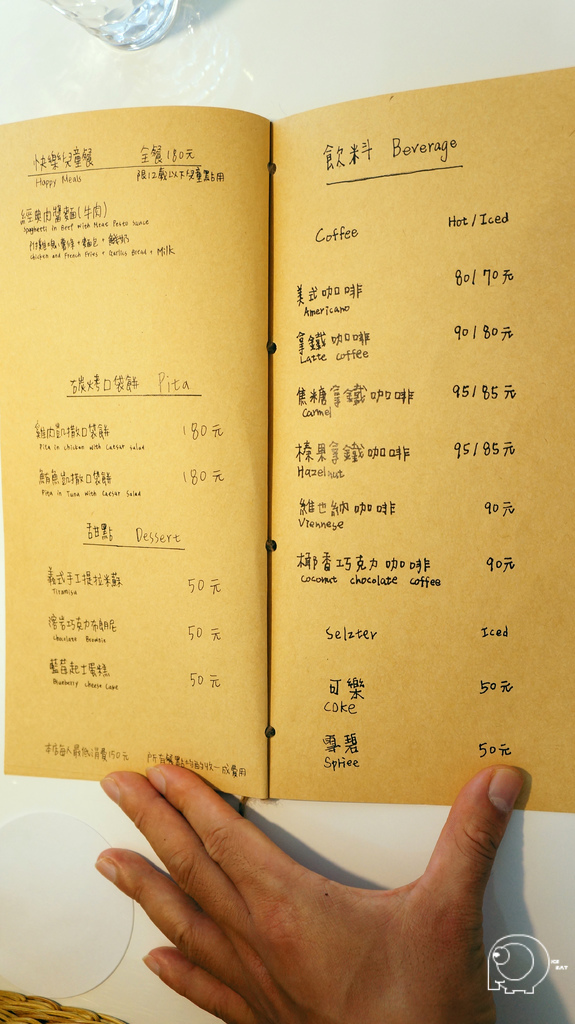 快樂兒童餐 全餐180元
Happy Meals 限12歲以下兒童點用
經典肉醬麵(牛肉)
Spaghetti in Beef with Meat Pesto Sauce
附雞塊、薯條+麵包+鮮奶
chicken and French Fries + Garlics Bread + Milk
碳烤口袋餅 Pita
雞肉凱撒口袋餅 180元
Pita in chicken with Caesar salad
鮪魚凱撒口袋餅 180元
Pita in Tuna with Caesar Salad
甜點 Dessert
義式手工提拉米蘇 50元
Tiramisu
溶岩巧克力布朗尼 50元
Chocolate Brownie
藍莓起士蛋糕 50元
Blueberry cheese Cake
本店每人最低消費150元 所有餐點均酌收一成費用
飲料 Beverage
Coffee Hot/Iced
美式咖啡 80/70元
Americano
拿鐵咖啡 90/80元
Latte coffee
焦糖拿鐵咖啡 95/85元
Carmel
榛果拿鐵咖啡 95/85元
Hazelnut
維也納咖啡 90元
Viennese
椰香巧克力咖啡 90元
Coconut chocolate coffee
Selzter Iced
可樂 50元
COKE
雪碧 50元
Spriee